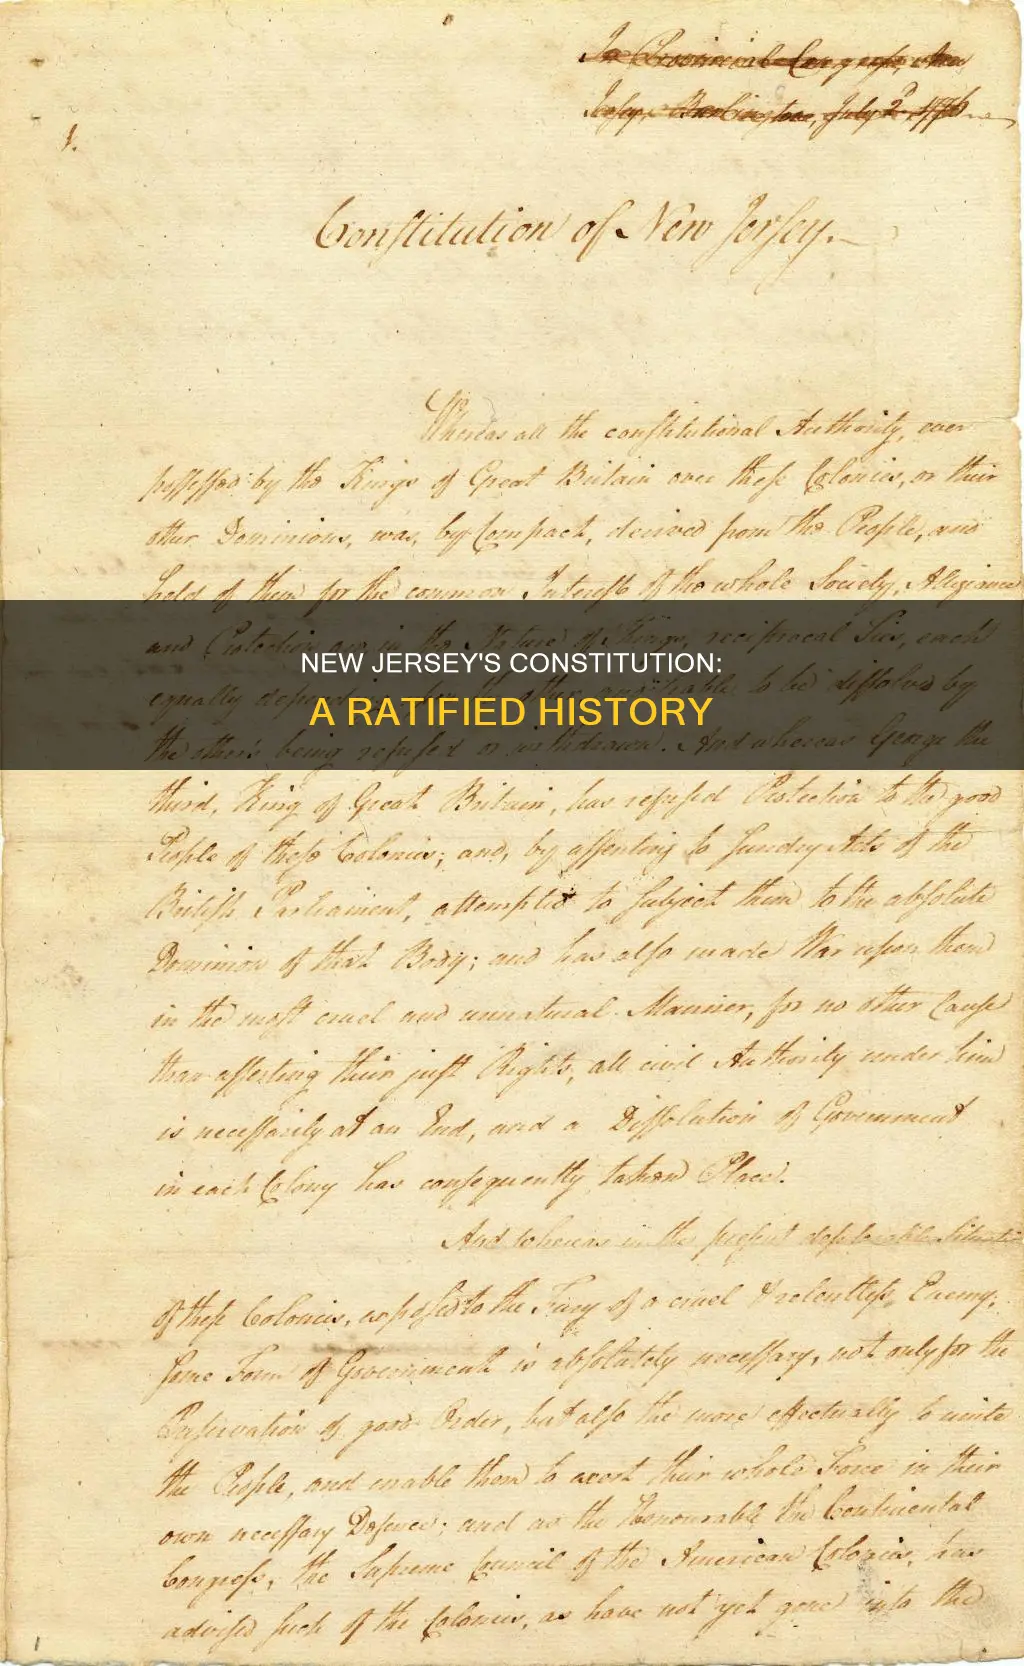 In Provincial Congress, New
Jersey, Burlington, July 2d 1776
1.
Constitution of New Jersey.
Whereas all the constitutional Authority, ever
possessed by the Kings of Great Britain over these Colonies, or their
other Dominions, was, by Compact, derived from the People, and
held of them for the common Interest of the whole Society, Allegiance
and Protection are in the Nature of Things, reciprocal Ties, each
NEW JERSEY'S CONSTITUTION:
equally depending the other, and liable to be dissolved by
A RATIFIED HISTORY
the others being refused or withdrawn. And whereas George the
third, King of Great Britain, has refused Protection to the good
People of these Colonies; and, by assenting to sundry Acts of the
British Parliament, attempted to subject them to the absolute
Dominion of that Body; and has also made War upon them
in the most cruel and unnatural Manner, for no other Cause
than asserting their just Rights, all civil Authority under him
is necessarily at an End, and a Dissolution of Government
in each Colony has consequently taken Place.
And whereas in the present deplorable Situation
of these Colonies, exposed to the Fury of a cruel & relentless Enemy,
some Form of Government is absolutely necessary, not only for the
Preservation of good Order, but also the more effectually to unite
the People, and enable them to exert their whole Force in their
own necessary Defence; and as the Honourable the Continental
Congress, the Supreme Council of the American Colonies, has
advised such of the Colonies, as have not yet gone into the
1